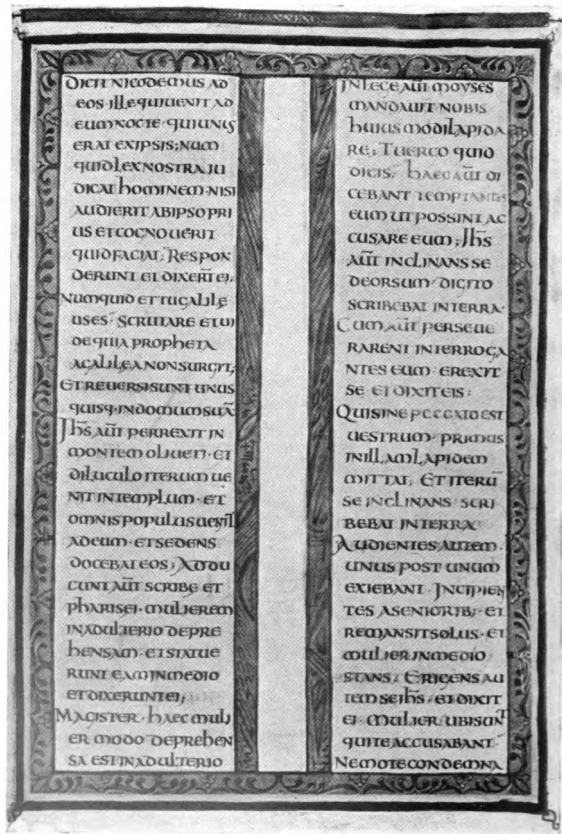 IOHANNEM
DICIT NICODEMUS AD
EOS· ILLE QUI UENIT AD
EUM NOCTE· QUI UNUS
ERAT EX IPSIS; NUM
QUID LEX NOSTRA JU
DICAT HOMINEM· NISI
AUDIERIT AB IPSO PRI
US ET COGNOUERIT
QUID FACIAT; RESPON
DERUNT EI DIXERT̄ EI·
NUMQUID ET TU GALILE
US ES· SCRUTARE ET UI
DE QUIA PROPHETA
A GALILEA NON SURGIT;
ET REUERSI SUNT UNUS
QUISQ· IN DOMUM SUĀ
JHS̄ AUT̄ PERREXIT IN
MONTEM OLIUETI· ET
DILUCULO ITERUM UE
NIT IN TEMPLUM· ET
OMNIS POPULUS UENIT
AD EUM· ET SEDENS
DOCEBAT EOS; ADDU
CUNT AUT̄ SCRIBE ET
PHARISEI· MULIEREM
IN ADULTERIO DEPRE
HENSAM· ET STATUE
RUNT EAM IN MEDIO
ET DIXERUNT EI;
MAGISTER· HAEC MULI
ER MODO DEPREHEN
SA EST IN ADULTERIO
JN LEGE AUT̄ MOYSES
MANDAUIT NOBIS
HUIUS MODI LAPIDA
RE; TU ERGO QUID
DICIS; HAEC AUT̄ DI
CEBANT TEMPTANTES
EUM UT POSSINT AC
CUSARE EUM; JHS̄
AUT̄ INCLINANS SE
DEORSUM· DIGITO
SCRIBEBAT IN TERRA·
CUM AUT̄ PERSEUE
RARENT INTERROGA
NTES EUM· EREXIT
SE ET DIXIT EIS:
QUI SINE PECCATO EST
UESTRUM· PRIMUS
IN ILLAM LAPIDEM
MITTAT; ET ITERŪ
SE INCLINANS SCRI
BEBAT IN TERRA·
AUDIENTES AUTEM·
UNUS POST UNUM
EXIEBANT· JNCIPIEN
TES A SENIORIB; ET
REMANSIT SOLUS· ET
MULIER IN MEDIO
STANS; ERIGENS AU
TEM SE JHS̄· ET DIXIT
EI· MULIER UBI SUNT
QUI TE ACCUSABANT·
NEMO TE CONDEMNA